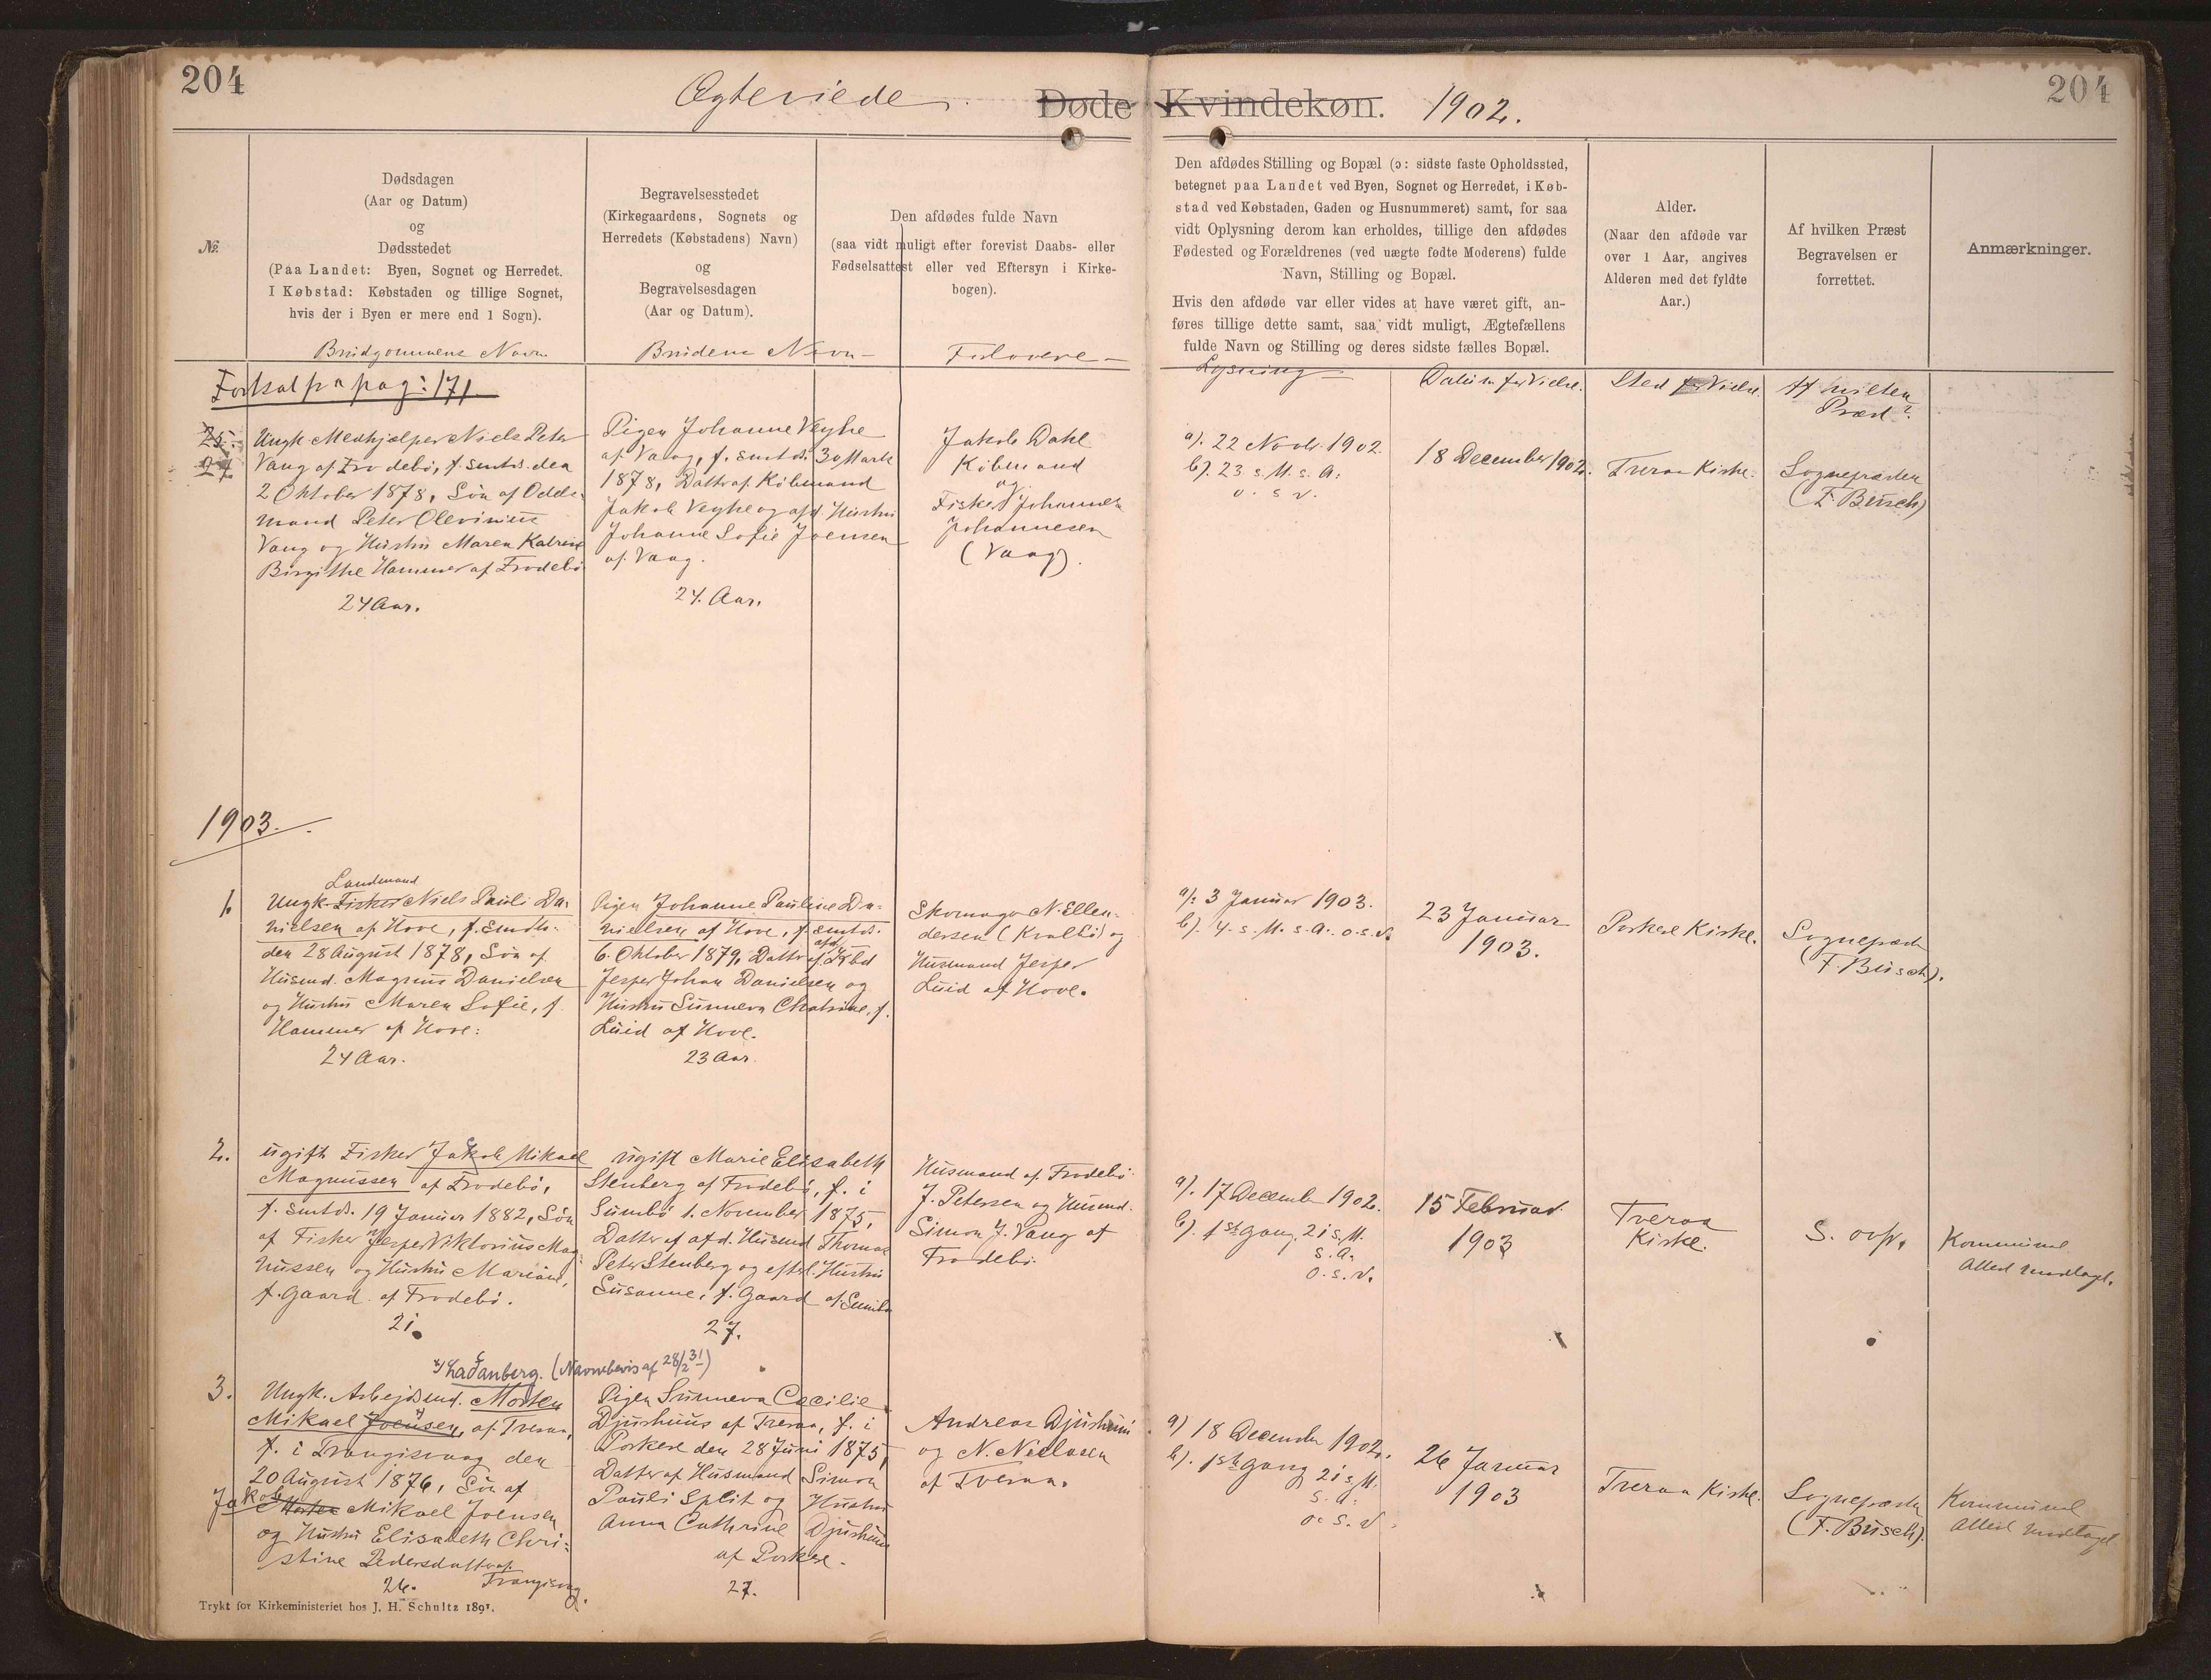 204
Ægteviede.
Døde Kvindekøn. 1902.
204
№
Dødsdagen
(Aar og Datum)
og
Dødsstedet
(Paa Landet: Byen, Sognet og Herredet.
I Købstad: Købstaden og tillige Sognet,
hvis der i Byen er mere end 1 Sogn).
Brudgommens Navn
Begravelsesstedet
(Kirkegaardens, Sognets og
Herredets (Købstadens) Navn)
og
Begravelsesdagen
(Aar og Datum).
Brudens Navn
Den afdødes fulde Navn
(saa vidt muligt efter forevist Daabs- eller
Fødselsattest eller ved Eftersyn i Kirke-
bogen).
Forlovere
Den afdødes Stilling og Bopæl (ɔ: sidste faste Opholdssted,
betegnet paa Landet ved Byen, Sognet og Herredet, i Køb-
stad ved Købstaden, Gaden og Husnummeret) samt, for saa
vidt Oplysning derom kan erholdes, tillige den afdødes
Fødested og Forældrenes (ved uægte fødte Moderens) fulde
Navn, Stilling og Bopæl.
Hvis den afdøde var eller vides at have været gift, an-
føres tillige dette samt, saa vidt muligt, Ægtefællens
fulde Navn og Stilling og deres sidste fælles Bopæl.
Lysning
Datum for Vielse.
Alder.
(Naar den afdøde var
over 1 Aar, angives
Alderen med det fyldte
Aar.)
Sted for Vielse.
Af hvilken Præst
Begravelsen er
forrettet.
Af hvilken
Præst?
Anmærkninger.
Fortsat fra pag: 171
25.
Ungk. Medhjælper Niels Peter
Vang af Frodebø, f. smtds. den
2 Oktober 1878, Søn af Odels-
mand Peter Olevinius
Vang og Hustru Maren Katrine
Birgithe Hammer af Frodebø
24 Aar.
Pigen Johanne Veyhe
af Vaag, f. smtds. 30 Marts
1878, Datter af Købmand
Jakob Veyhe og afd. Hustru
Johanne Sofie Joensen
af Vaag.
24. Aar.
Jakob Dahl
Købmand
og
Fisker Johannes
Johannesen
(Vaag).
a). 22 Novbr. 1902.
b). 23. s. M. s. A.
o. s. v.
18 December 1902.
Tveraa Kirke.
Sognepræsten
(F. Busch)
1903.
1.
Landmand
Ungk. Fisker Niels Pauli Da-
nielsen af Hove, f. smtds.
den 28 August 1878, Søn af
Husmd. Magnus Danielsen
og Hustru Maren Sofie, f.
Hammer af Hove:
24 Aar.
Pigen Johanne Pauline Da-
nielsen af Hove, f. smtds.
afd.
6. Oktober 1879, Datter af
Jesper Johan Danielsen og
Hustru Sunneva Chatrine, f.
Luid af Hove.
23 Aar.
Skomager N. Ellen-
dersen (Kvalbø) og
Husmand Jesper
Luid af Hove.
a): 3 Januar 1903.
b). 4. s. M. s. A. o. s. v.
23 Januar
1903.
Porkere Kirke.
Sognepræsten
(F. Busch).
2.
ugift Fisker Jakob Mikael
Magnussen af Frodebø,
f. smtds. 19 Januar 1882, Søn
af Fisker Jesper Viktorius Mag-
nussen og Hustru Mariane,
f. Gaard af Frodebø.
21.
ugift Marie Elisabeth
Stenberg af Frodebø, f. i
Sumbø 1. November 1875,
Datter af afd. Husmd Thomas
Peter Stenberg og efterl. Hustru
Susanne, f. Gaard af Sumbø
27.
Husmand af Frodebø
J. Petersen og Husmd.
Simon J. Vang af
Frodebø.
a). 17 December 1902.
b). 1ste gang 21 s. M.
s. A.
o. s. v.
15 Februar
1903
Tveraa
Kirke.
S. ovfr.
Kommunal
Attest modtaget.
3.
Ladanberg. (Navnebevis af 28/2 31)
Ungk. Arbejdsmd. Morten
Mikael Joensen, af Tveraa,
f. i Trangisvaag den
20 August 1876, Søn af
Jakob
Morten Mikael Joensen
og Hustru Elisabeth Chri-
stine Pedersdatter af
26. Trangisvaag.
Pigen Sunneva Cecilie
Djurhuus af Tveraa, f. i
Porkere den 28 Juni 1875,
Datter af Husmand Simon
Pauli Split og Hustru
Anna Cathrine Djurhuus
af Porkere.
27.
Andreas Djurhuus
og N. Nielsen
af Tveraa.
a) 18 December 1902.
b). 1ste gang 21 s. M.
s. A.
o. s. v.
26 Januar
1903
Tveraa Kirke.
Sognepræsten
(F. Busch).
Kommunal
Attest modtaget
Trykt for Kirkeministeriet hos J. H. Schultz 1891.